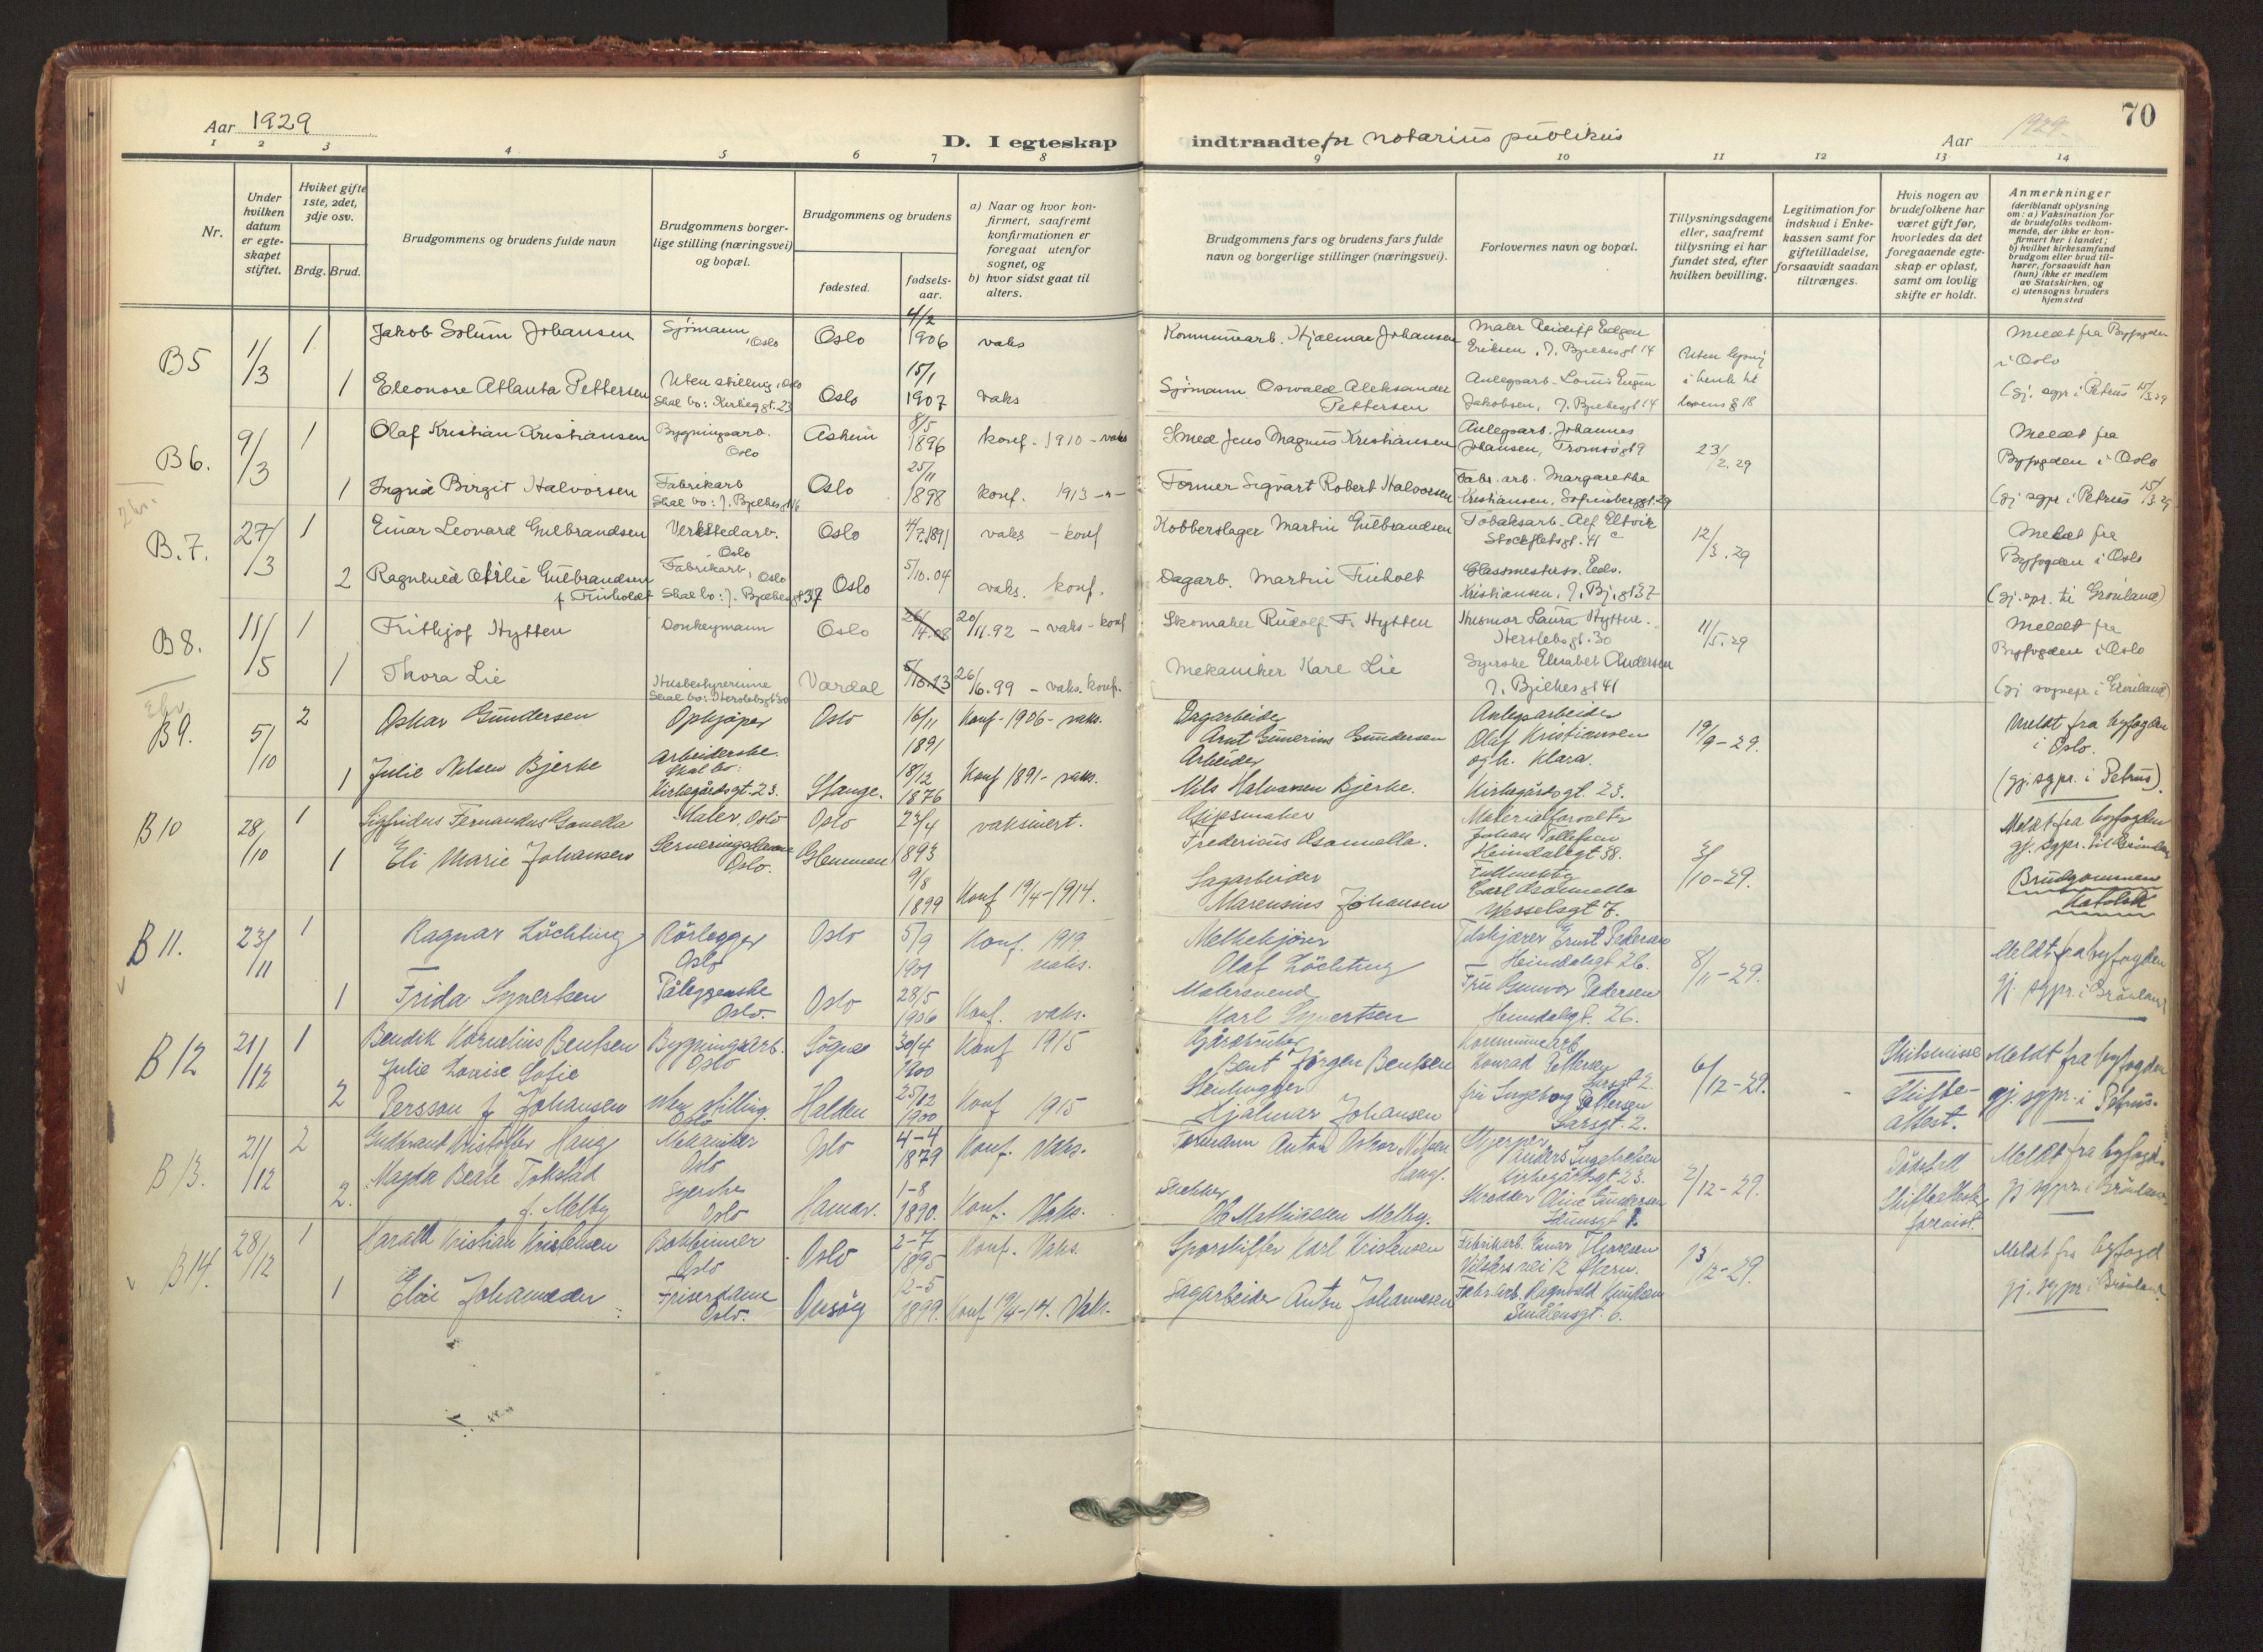 Aar 1929
D. I egteskap indtraadte for notarius publikus
Aar 1929.
70
1 2 3 4 5 6 7 8 9 10 11 12 13 14
Nr.
Under hvilken datum er egte-skapet stiftet.
Hviket gifte 1ste, 2det, 3dje osv.
Brdg. Brud.
Brudgommens og brudens fulde navn
Brudgommens borger-lige stilling (næringsvei) og bopæl.
Brudgommens og brudens
fødested.
fødsels-aar.
a) Naar og hvor kon-firmert, saafremt konfirmationen er foregaat utenfor sognet, og
b) hvor sidst gaat til alters.
Brudgommens fars og brudens fars fulde navn og borgerlige stillinger (næringsvei).
Forlovernes navn og bopæl.
Tillysningsdagene eller, saafremt tillysning ei har fundet sted, efter hvilken bevilling.
Legitimation for indskud i Enke-kassen samt for giftetilladelse, forsaavidt saadan tiltrænges.
Hvis nogen av brudefolkene har været gift før, hvorledes da det foregaaende egte-skap er opløst, samt om lovlig skifte er holdt.
Anmerkninger
(deriblandt oplysning om: a) Vaksination for de brudefolks vedkom-mende, der ikke er kon-firmert her i landet; b) hvilket kirkesamfund brudgom eller brud til-hører, forsaavidt han (hun) ikke er medlem av Statskirken, og c) utensogns bruders hjemsted
B5 1/3 1 Jakob Solum Johansen Sjømann, Oslo Oslo 4/2 1906 vaks Kommunearb. Hjalmar Johansen Maler Eriksen, J. Bjelkesgt 14 Uten lysning i henh. til lovens § 18 Meldt fra Byfogden i Oslo
1 Eleonore Atlanta Pettersen Uten stilling, Oslo Skal bo: Kirkeggt. 23 Oslo 15/1 1907 vaks Sjømann Oswald Aleksander Pettersen Anlegsarb. Louis Eugen Jakobsen, J. Bjelkesgt 14 (gj. sgpr i Petrus 15/3 29
B6. 9/3 1 Olaf Kristian Kristiansen Bygningsarb. Oslo Askim 8/5 1896 konf. 1910 - vaks Smed Jens Magnus Kristiansen Anlegsarb. Johannes Johansen, Tromsøgt 9 23/2. 29 Meldt fra Byfogden i Oslo
1 Ingrid Birgit Halvorsen Fabrikarb Skal bo: J. Bjelkesgt 16 Oslo 25/11 1898 konf. 1913 -"- Former Sigvart Robert Halvorsen Fabr. arb. Margarethe Kristiansen, Sofienberggt. 29 (gj sgpr i Petrus 15/3 29
B.7. 27/3 1 Einar Leonard Gulbrandsen Verkstedarb. Oslo Oslo 4/7.1891 vaks - konf Kobberslager Martin Gulbrandsen Tobaksarb. Alf Eltvik Stockfletsgt. 41 c 12/3. 29 Meldt fra Byfogden i Oslo
2 Ragnhild Otilie Gulbrandsen f Friholdt Fabrikarb, Oslo Skal bo: J. Bjelkesgt 37 Oslo 5/10.04 vaks. konf. Dagarb. Martin Friholt Glassmesters. Edv. Kristiansen, J. Bj.gt 37 (gj. spr. til Grønland)
B8. 11/5 1 Frithjof Hytten Donkeymann Oslo 20/11.92 - vaks - konf Skomaker Rudolf F. Hytten Husmor Laura Hytten. Herslebsgt. 30 11/5. 29 Meldt fra Byfogden i Oslo
1 Thora Lie Husbestyrerinne Skal bo: Herslebsgt 30 Vardal 5/10.23 26/6.99 - vaks. konf. Mekaniker Karl Lie Syerske Elisabet Andersen J. Bjelkesgt 41 (gj sognepr i Grønland)
B9. 5/10 2 Oskar Gundersen Opkjøper Oslo 16/11 1891 Konf - 1906 - vaks. Dagarbeider Arnt Gunerius Gundersen Anlegsarbeider Olaf Kristiansen og h. Klara. 19/9 - 29. Meldt fra byfogden i Oslo.
1 Julie Nilsen Bjerke Arbeiderske. Skal bo: Kirkegårdsgt. 23. Stange. 18/12 1876 Konf 1891 - vaks. Arbeider Nils Halvorsen Bjerke. Kirkegårdsgt. 23. (gj. sgpr. i Petrus).
B10 28/10 1 Sigfridus Fernandus Gomella Maler, Oslo Oslo 23/4 1893 vaksinert. Gipsmaker Materialforvalter Johan Tollefsen Heimdalsgt 38. 3/10 - 29. Meldt fra byfogden gj. sgpr. til Grønland
1 Eli Marie Johansen Serveringsdame Oslo. Glemmen 9/8 1899 Konf 19/4 - 1914. Sagarbeider Marensius Johansen Fullmektig Carl Wesselsgt 7. Brudgommen Katolsk
B11. 23/11 1 Ragnar Löchting Rörlegger Oslo Oslo 5/9 1901 Konf. 1919. vaks. Melkekjører Olaf Löchting Ernst Pedersen Heimdalsgt 26. 8/11 - 29. Meldt fra byfogden
1 Frida Syvertsen Påleggerske Oslo. Oslo 28/5 1906 Konf. vaks. Malersvend Karl Syvertsen Fru Gunvor Pedersen Heimdalsgt. 26. gj. sgpr. i Grönland
B12 21/12 1 Bendik Kornelius Bentsen Bygningsarb. Oslo Søgne 30/4 1900 Konf 1915 Gårdbruker Bent Jörgen Bentsen Kommunearb Konrad Pettersen Sarsgt 2 6/12 - 29. Skilsmisse Meldt fra byfogden
2 Julie Lovise Sofie Persson f Johansen uten stilling. Oslo Halden 25/12 1900 Konf 1915 Stenhugger Hjalmar Johansen fru Ingeborg Pettersen Sarsgt. 2. Skifte-attest. gj. sgpr. i Petrus.
B13. 21/12 2 Gulbrand Kristoffer Haug Mekaniker Oslo Oslo 4-4 1879 Konf. Vaks. Formann Anton Oskar Nilsen Haug. Anders Ingebretsen Kirkegårdsgt 23. 2/12 - 29. Dödsfall Meldt fra byfogd.
2. Magda Beate Tokstad f. Melby Syerske Oslo Hamar. 1-8 1890. Konf. Vaks. Snekker Ole Mathiasen Melby. Skredder Gundersen Skifteattest forevist. gj sgpr i Grönland
B14. 28/12 1 Harald Kristian Kristensen Oslo Oslo 2-7 1895 Konf. Vaks. Sporskifter Karl Kristensen Fabrikarb. Einar Thoresen 13/12 - 29. Meldt fra byfogd
1 Elise Johannesen Friserdame Oslo. Onsöy 12-5 1899. Konf 19/4-14. Vaks. Sagarbeider Anton Johannesen Fabr.arb. Ragnvald Knutsen Smålensgt. 6. gj. sgpr i Grönland